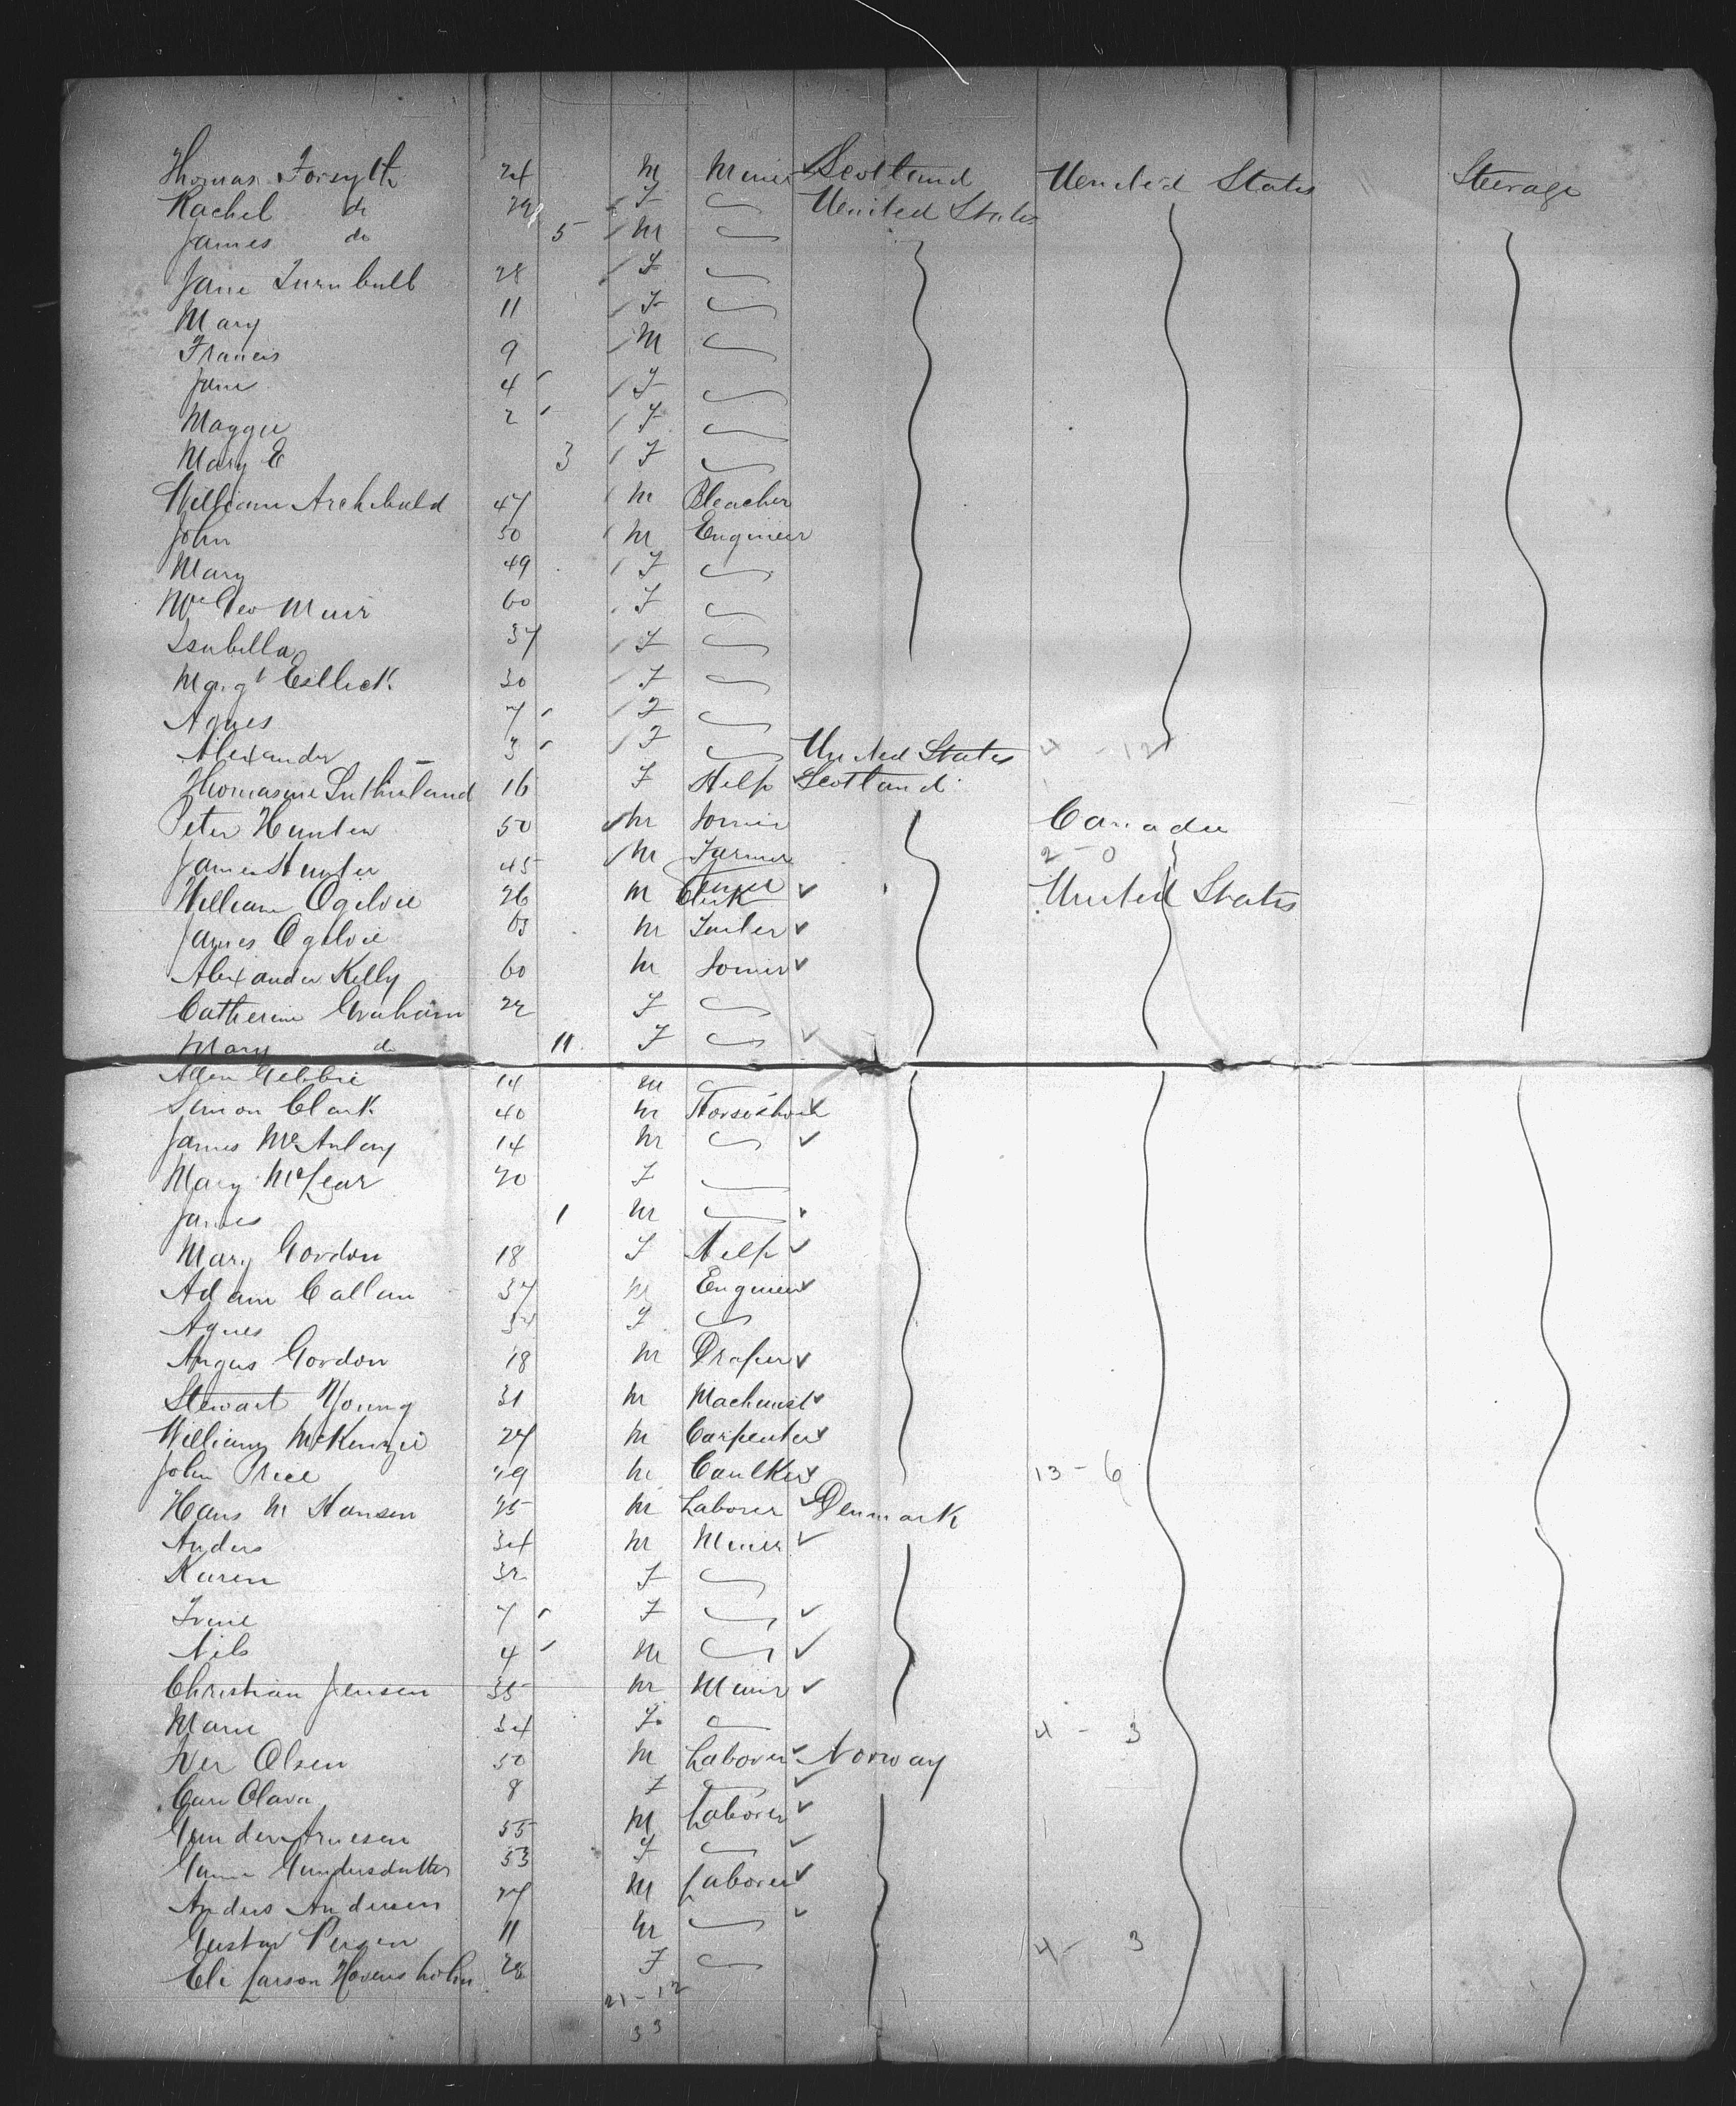 Thomas Forsyth 24 M Miner Scotland United States Steerage
Rachel do 29 F United States
James do 5 M
Jane Turnbull 28 F
Mary 11 F
Francis 9 M
Jane 4 F
Maggie 2 F
Mary E 3 F
William Archibald 47 M Bleacher
John 50 M Engineer
Mary 49 F
Muir 60 F
Isabella 37 F
Margt 30 F
Agnes 7 F
Alexander 3 F United States 4 - 12
Thomasine Sutherland 16 F Help Scotland
Peter Hunter 50 M Joiner Canada
James Hunter 45 M Farmer 2 - 0
William Ogilvie 26 M Clerk United States
James Ogilvie 63 M
Alexander Kelly 60 M Joiner
Catherine Graham 22 F
Mary do 11 F
Gebbie 14 M
Simon Clark 40 M
James McAulay 14 M
Mary McLear 20 F
James 1 M
Mary Gordon 18 F Help
Adam Callan 37 M Engineer
Agnes F
Angus Gordon 18 M Draper
Stewart Young 31 M Machinist
William McKenzie 27 M Carpenter
John Price 29 M Caulker 13 - 6
Hans M Hansen 25 M Laborer Denmark
Anders 34 M Miner
Karen 32 F
7 F
Nils 4 M
Christian Jensen 35 M Miner
Marie 34 F 4 - 3
Iver Olsen 50 M Laborer Norway
Olava 8 F
55 M Laborer
Gundersdatter 53 F
Anders Andersen 27 M Laborer
Gustav 11 M
Eli Larson 28 F 4 - 3
21 - 12
33